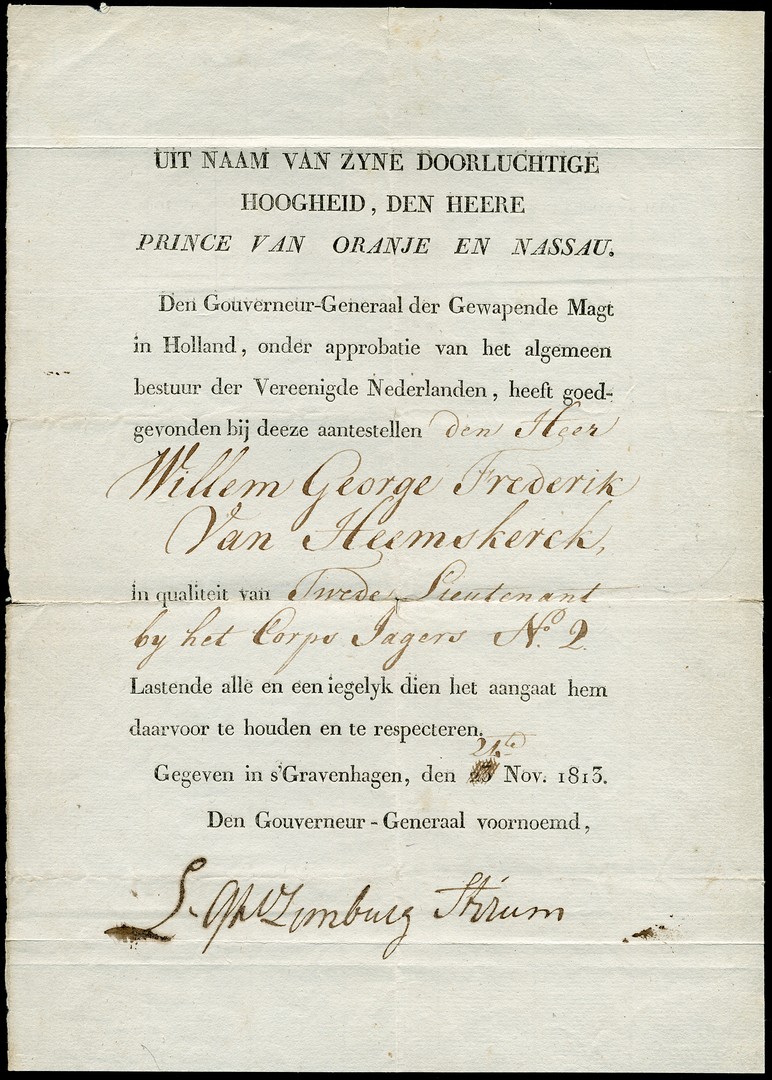 UIT NAAM VAN ZYNE DOORLUCHTIGE
HOOGHEID, DEN HEERE
PRINCE VAN ORANJE EN NASSAU.
Den Gouverneur-Generaal der Gewapende Magt
in Holland, onder approbatie van het algemeen
bestuur der Vereenigde Nederlanden, heeft goed-
gevonden bij deeze aantestellen den Heer
Willem George Frederik
Van Heemskerck,
in qualiteit van Twede Lieutenant
by het Corps Jagers No. 2.
Lastende alle en een iegelyk dien het aangaat hem
daarvoor te houden en te respecteren.
21te
Gegeven in s'Gravenhagen, den Nov. 1813.
Den Gouverneur-Generaal voornoemd,
L. v Limburg Stirum